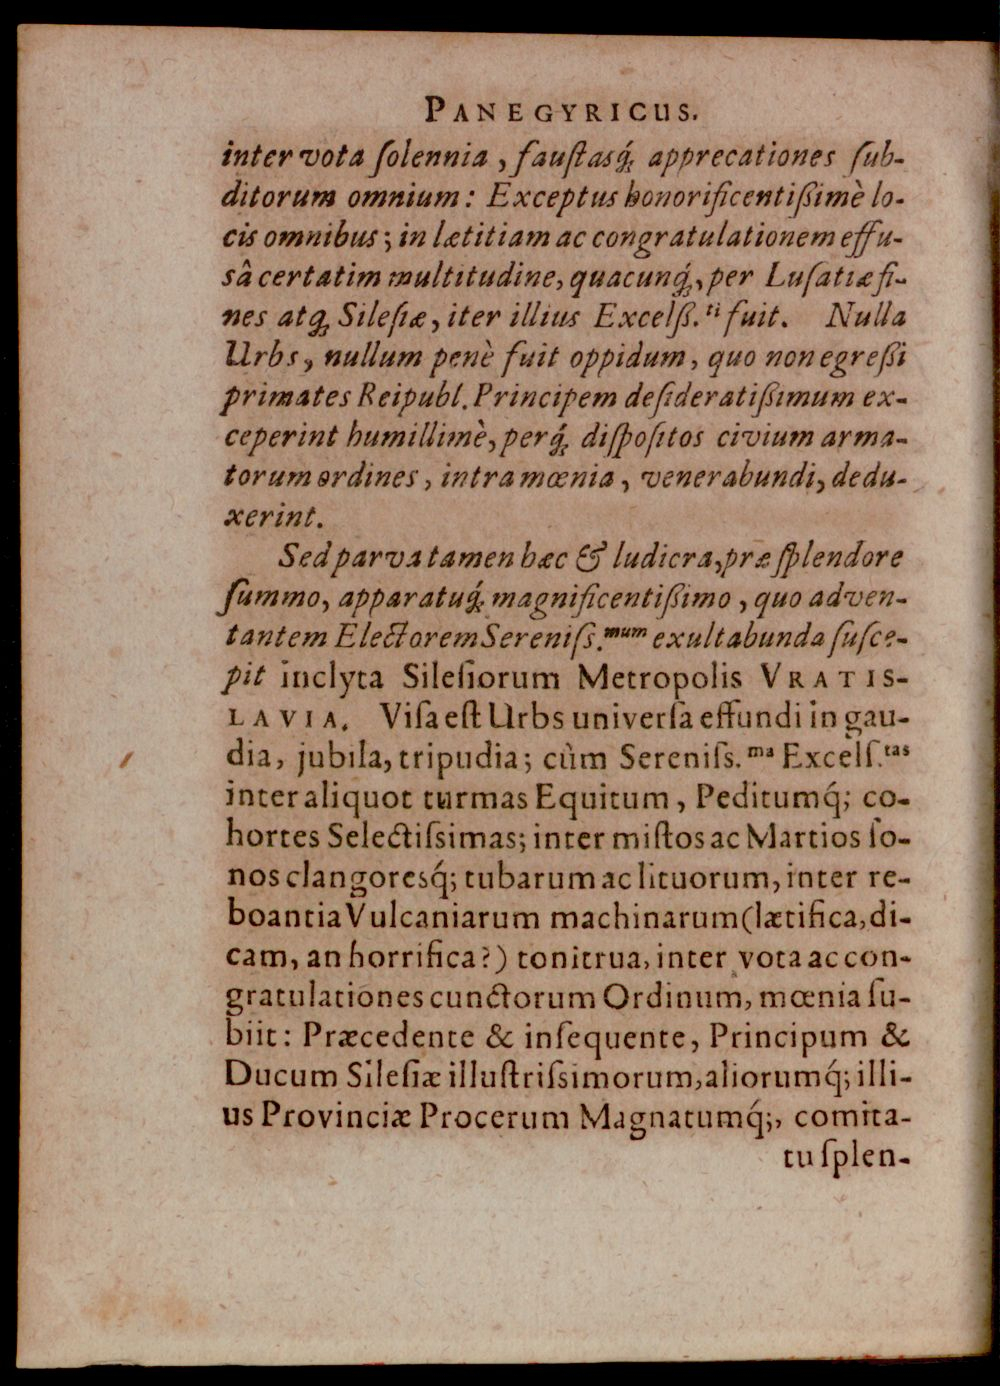 PANEGYRICUS.
inter vota ſolennia, fauſtasq́; apprecationes ſub-
ditorum omnium: Exceptus honorificentißimè lo-
cis omnibus; in lætitiam ac congratulationem effu-
sâ certatim multitudine, quacunq́;, per Luſatiæ fi-
nes atq; Sileſiæ, iter illius Excelß.ti fuit. Nulla
Urbs, nullum penè fuit oppidum, quo non egreßi
primates Reipubl. Principem deſideratißimum ex-
ceperint humillimè, perq́; diſpoſitos civium arma-
torum ordines, intra mœnia, venerabundi, dedu-
xerint.
Sed parva tamen hæc & ludicra, præ ſplendore
ſummo, apparatuq́; magnificentißimo, quo adven-
tantem Electorem Sereniſs.mum exultabunda ſuſce-
pit inclyta Sileſiorum Metropolis VRATIS-
LAVIA. Viſa eſt Urbs univerſa effundi in gau-
dia, jubila, tripudia; cùm Sereniſs.ma Excelſ.tas
inter aliquot turmas Equitum, Peditumq́; co-
hortes Selectiſsimas; inter miſtos ac Martios ſo-
nos clangoresq́; tubarum ac lituorum, inter re-
boantia Vulcaniarum machinarum (lætifica, di-
cam, an horrifica?) tonitrua, inter vota ac con-
gratulationes cunctorum Ordinum, mœnia ſu-
biit: Præcedente & inſequente, Principum &
Ducum Sileſiæ illuſtriſsimorum, aliorumq́; illi-
us Provinciæ Procerum Magnatumq́;, comita-
tu ſplen-